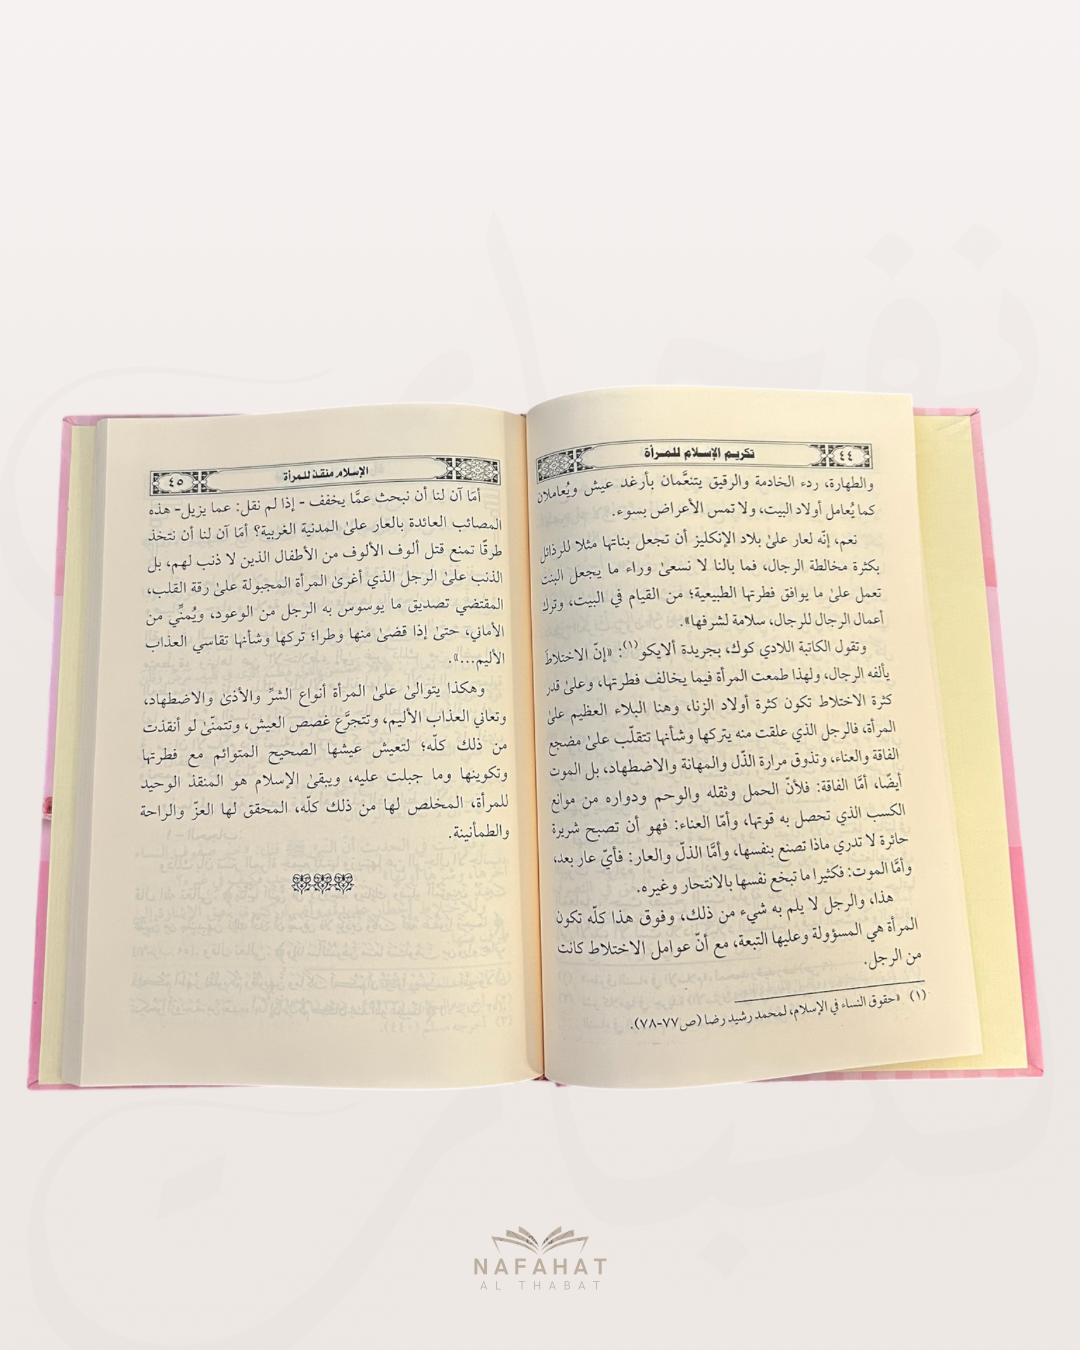 ٤٤
تكريم الإسلام للمرأة
والطهارة، ردء الخادمة والرقيق يتنعَّمان بأرغد عيش ويُعاملان
كما يُعامل أولاد البيت، ولا تمس الأعراض بسوء.
نعم، إنّه لعار علىٰ بلاد الإنكليز أن تجعل بناتها مثلا للرذائل
بكثرة مخالطة الرجال، فما بالنا لا نسعىٰ وراء ما يجعل البنت
تعمل علىٰ ما يوافق فطرتها الطبيعية؛ من القيام في البيت، وترك
أعمال الرجال للرجال، سلامة لشرفها».
وتقول الكاتبة اللادي كوك، بجريدة ألايكو(١): «إنّ الاختلاط
يألفه الرجال، ولهذا طمعت المرأة فيما يخالف فطرتها، وعلىٰ قدر
كثرة الاختلاط تكون كثرة أولاد الزنا، وهنا البلاء العظيم علىٰ
المرأة، فالرجل الذي علقت منه يتركها وشأنها تتقلّب علىٰ مضجع
الفاقة والعناء، وتذوق مرارة الذّل والمهانة والاضطهاد، بل الموت
أيضًا، أمّا الفاقة: فلأنّ الحمل وثقله والوحم ودواره من موانع
الكسب الذي تحصل به قوتها، وأمّا العناء: فهو أن تصبح شريرة
حائرة لا تدري ماذا تصنع بنفسها، وأمَّا الذّل والعار: فأيّ عار بعد،
وأمَّا الموت: فكثيرا ما تبخع نفسها بالانتحار وغيره.
هذا، والرجل لا يلم به شيء من ذلك، وفوق هذا كلّه تكون
المرأة هي المسؤولة وعليها التبعة، مع أنّ عوامل الاختلاط كانت
من الرجل.
(١) «حقوق النساء في الإسلام، لمحمد رشيد رضا (ص٧٧-٧٨).
الإسلام منقذ للمرأة
٤٥
أمَا آن لنا أن نبحث عمَّا يخفف - إذا لم نقل: عما يزيل- هذه
المصائب العائدة بالعار علىٰ المدنية الغربية؟ أمَا آن لنا أن نتخذ
طرقًا تمنع قتل ألوف الألوف من الأطفال الذين لا ذنب لهم، بل
الذنب علىٰ الرجل الذي أغرىٰ المرأة المجبولة علىٰ رقة القلب،
المقتضي تصديق ما يوسوس به الرجل من الوعود، ويُمنِّي من
الأماني، حتىٰ إذا قضىٰ منها وطرا؛ تركها وشأنها تقاسي العذاب
الأليم...».
وهكذا يتوالىٰ علىٰ المرأة أنواع الشرِّ والأذىٰ والاضطهاد،
وتعاني العذاب الأليم، وتتجرَّع غصص العيش، وتتمنّىٰ لو أنقذت
من ذلك كلّه؛ لتعيش عيشها الصحيح المتوائم مع فطرتها
وتكوينها وما جبلت عليه، ويبقىٰ الإسلام هو المنقذ الوحيد
للمرأة، المخلص لها من ذلك كلّه، المحقق لها العزّ والراحة
والطمأنينة.
NAFAHAT
AL THABAT